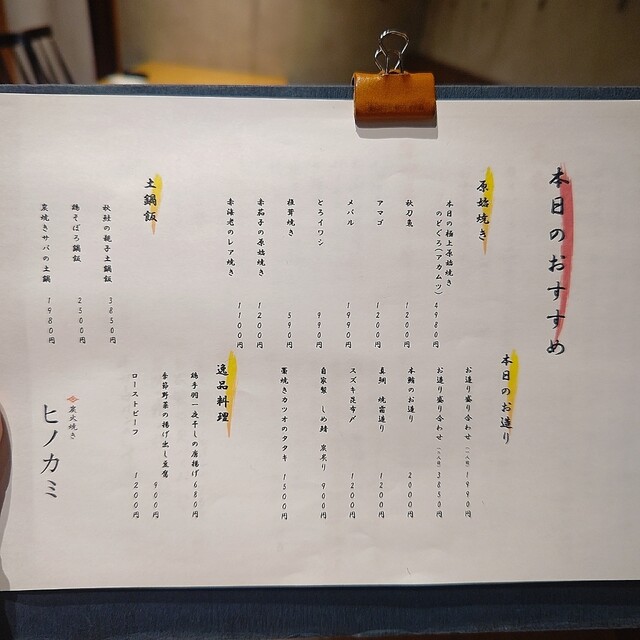 本日のおすすめ
原始焼き
本日の極上原始焼き
のどぐろ(アカムツ) 4980円
秋刀魚 1200円
アマゴ 1200円
メバル 1990円
とろイワシ 990円
椎茸焼き 590円
赤茄子の原始焼き 1200円
赤海老のレア焼き 1100円
土鍋飯
秋鮭の親子土鍋飯 3850円
鶏そぼろ鍋飯 2500円
炭焼きサバの土鍋 1980円
本日のお造り
お造り盛り合わせ(一人前) 1990円
お造り盛り合わせ(二人前) 3850円
本鮪のお造り 2000円
真鯛 焼霜造り 1200円
スズキ昆布〆 1200円
自家製 しめ鯖 炭炙り 900円
藁焼きカツオのタタキ 1500円
逸品料理
鶏手羽一夜干しの唐揚げ 680円
季節野菜の揚げ出し豆腐 900円
ローストビーフ 1200円
炭火焼き
ヒノカミ